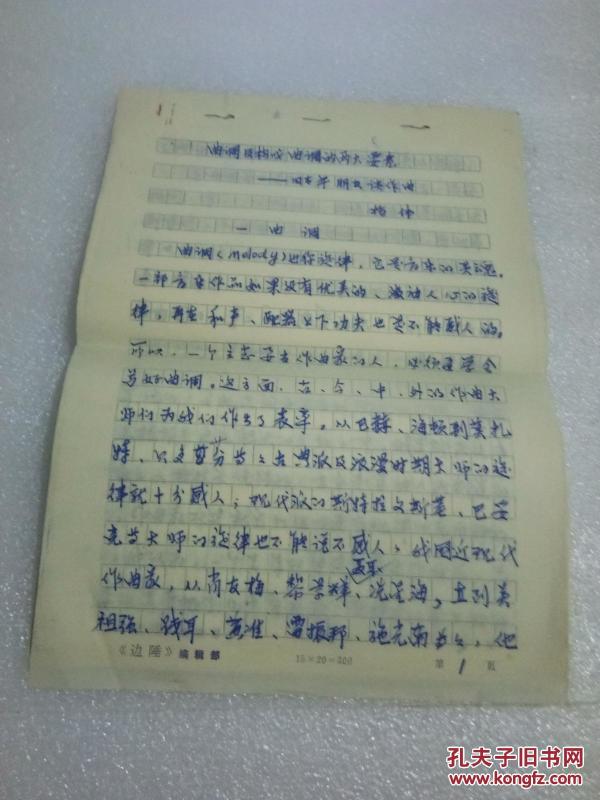 曲调及构成曲调的两大要素
——与青年朋友谈作曲
杨伟
一 曲调
曲调（melody）也称旋律，它是音乐的灵魂。
一部音乐作品如果没有优美的、激动人心的旋
律，再在和声、配器上下功夫也是不能感人的。
所以，一个立志要当作曲家的人，必须要学会
写好曲调。这方面，古、今、中、外的作曲大
师们为我们作出了表率。从巴赫、海顿到莫扎
特、贝多芬等等古典派及浪漫时期大师的旋
律就十分感人；现代派的斯特拉文斯基、巴
克等大师的旋律也不能说不感人，我国近现代
作曲家，从肖友梅、黎锦辉、聂耳、冼星海，直到吴
祖强、黄准、雷振邦、施光南等等，他
《边陲》编辑部
15×20=300
第1页
孔夫子旧书网
www.kongfz.com